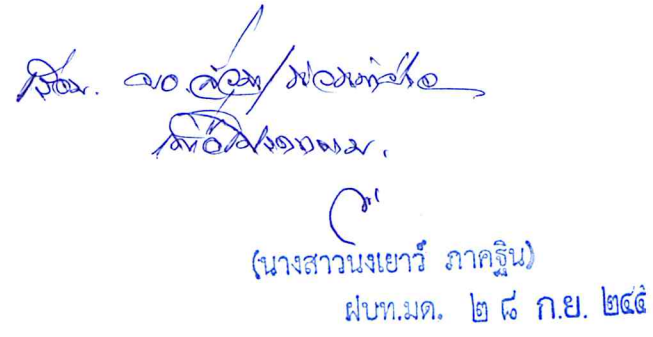 เรียน. ผอ.
เพื่อโปรดทราบ.
(นางสาวนงเยาว์ ภาคฐิน)
ฝบท.มด. ๒๘ ก.ย. ๒๕๕